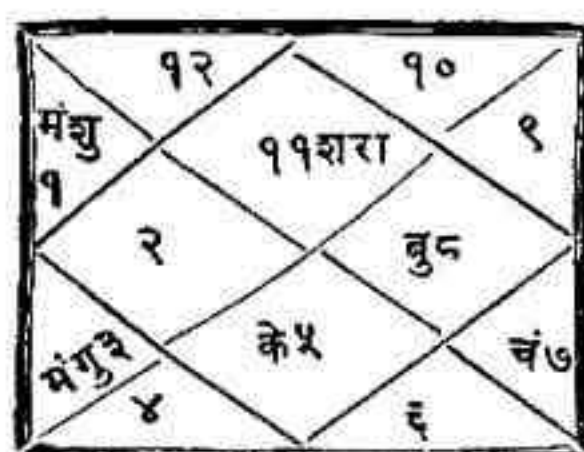 १२
१०
मंशु
१
११शरा
९
२
बु८
मंगु३
के५
चं७
४
६